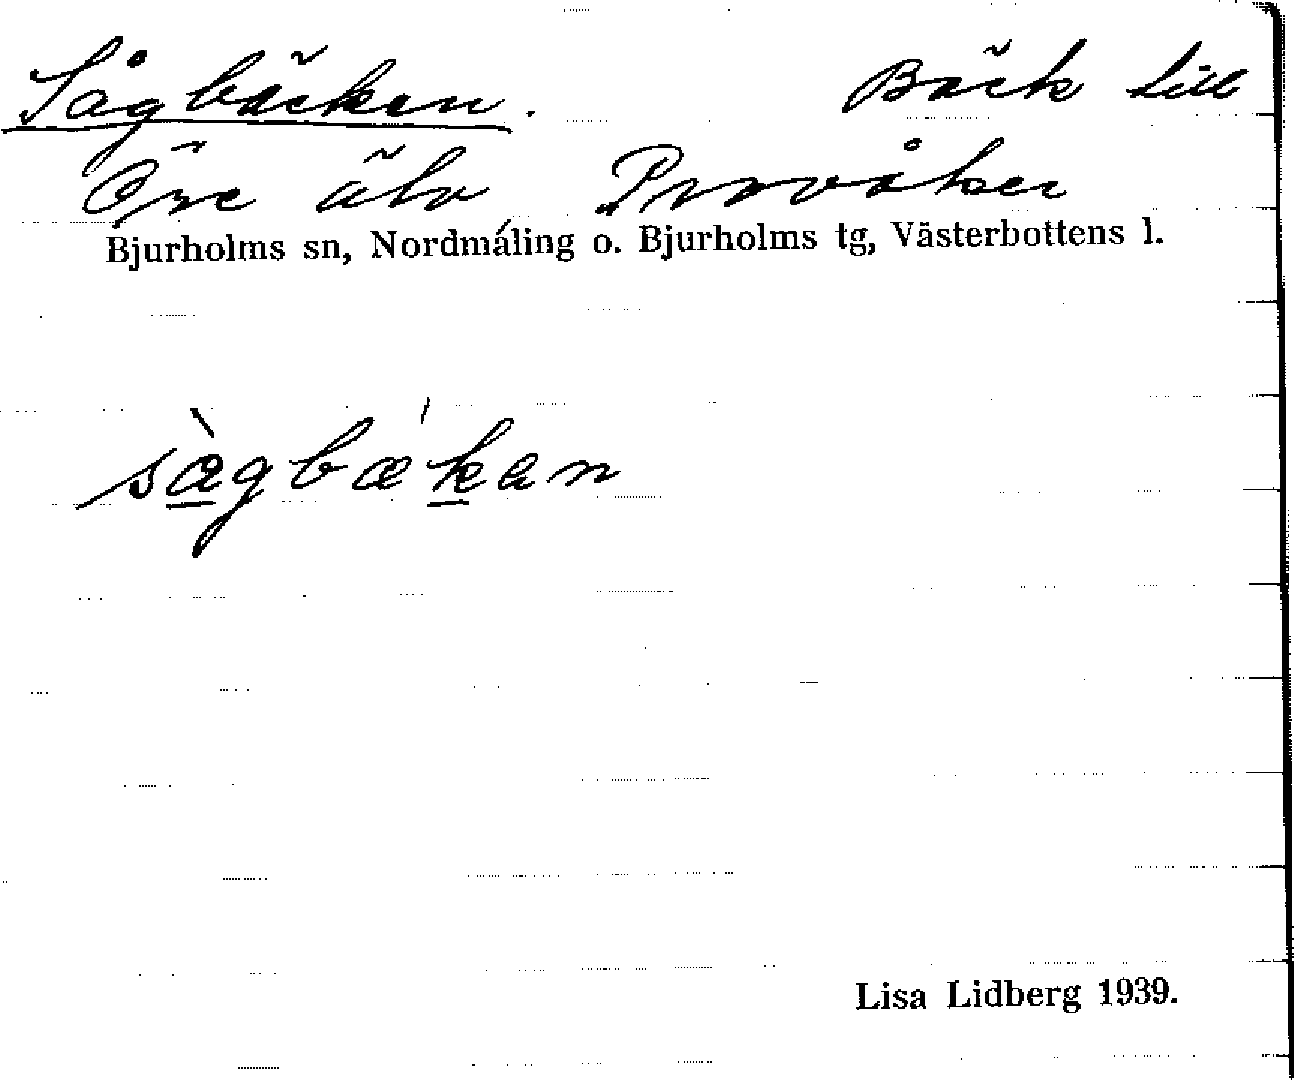 Sågbäcken. Bäck till
Öre älv Provåker
Bjurholms sn, Nordmaling o. Bjurholms tg, Västerbottens l.
sàgbækan
Lisa Lidberg 1939.